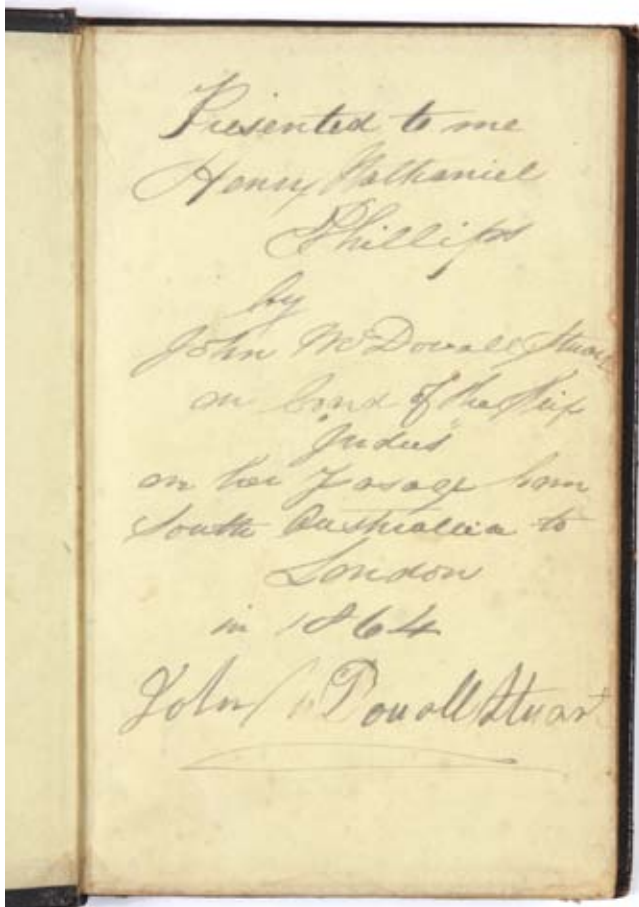 Presented to me
Henry Nathaniel
Phillips
by
John McDouall Stuart
on board of the Ship
"Indus"
on her Passage from
South Australia to
London
in 1864
John McDouall Stuart